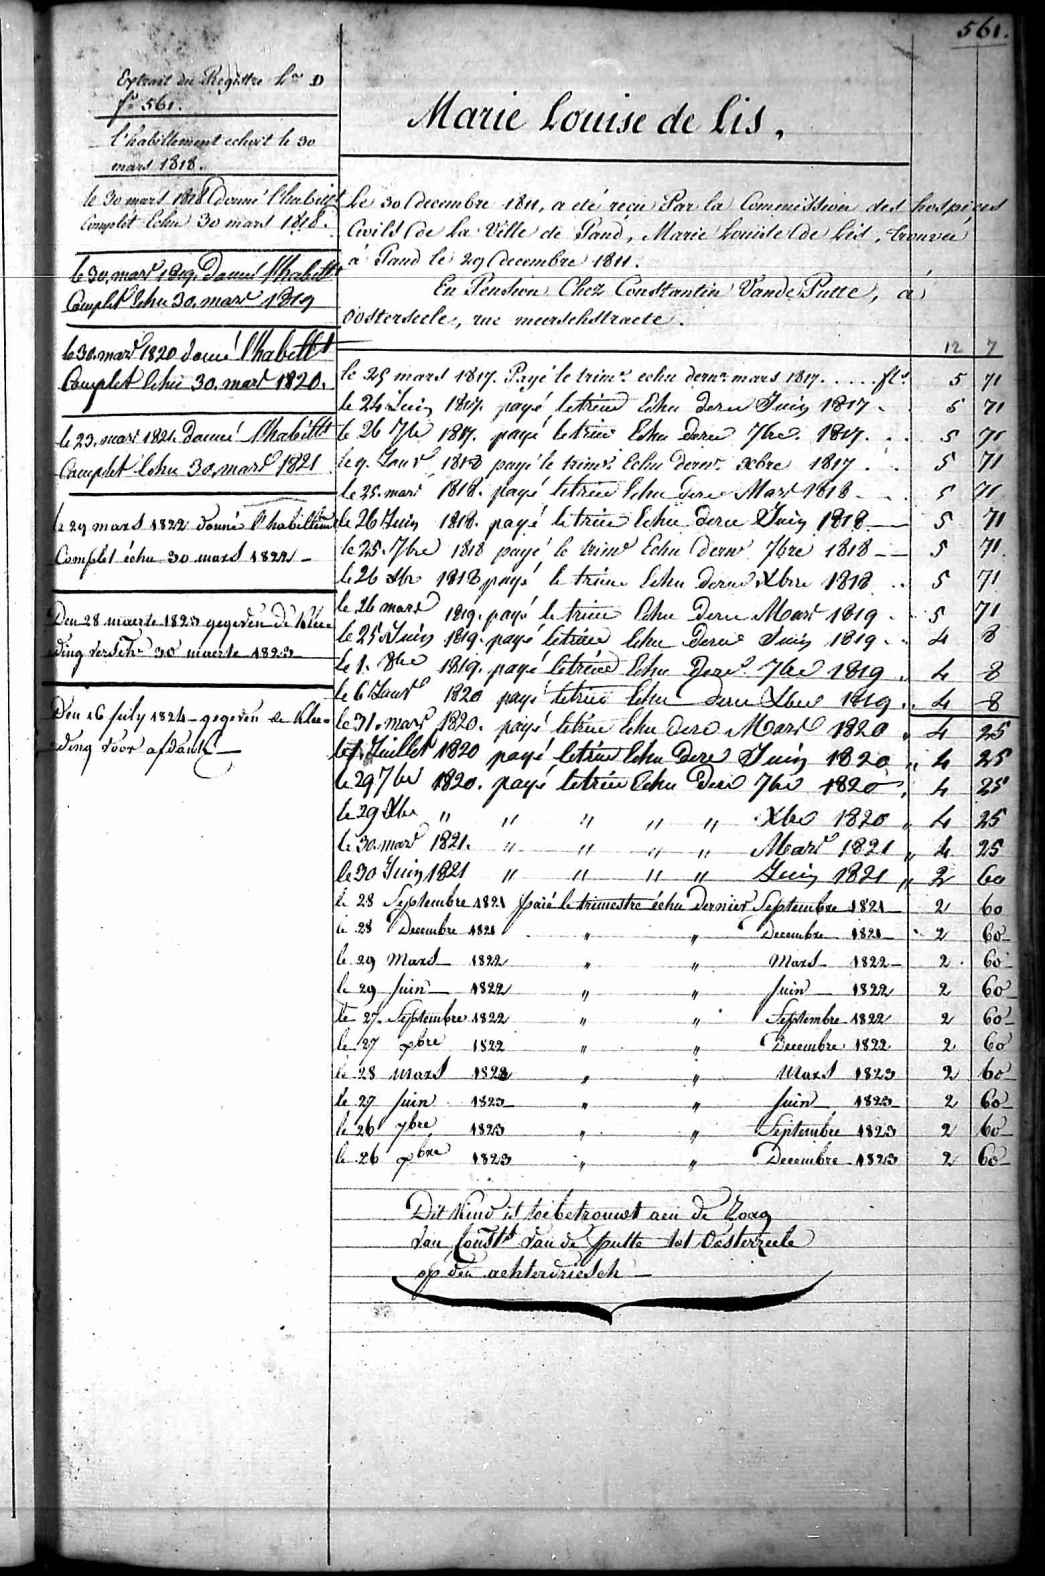 561.
Extrait du Registre Lre D
fo 561.
l'habillement echoit le 30
mars 1818.
le 30 mars 1818 donné l'habillt
Complet Echu 30 mars 1818.
le 30. mars 1819. donné l'habillt
Complet Echu 30. mars 1819
le 30. mars 1820 donné l'habillt
Complet Echu 30. mars 1820.
le 23. mars 1821. donné l'habillt
Complet Echu 30. mars 1821
le 29 mars 1822 donné l'habillem
Complet échu 30 mars 1822 —
Den 28 maerte 1823 gegeven de klee
ding versch. 30 maerte 1823
Den 16 July 1824 — gegeven de klee-
ding voor afdank
Marie Louise de Lis.
Le 30 Decembre 1811, a été recu Par la Commission des hospices
Civils de La Ville de Gand, Marie Louise de Lis, trouvée
à Gand le 29 Decembre 1811.
En Pension Chez Constantin Vande Putte, à
Oosterseele, rue meerschstraete.
12 7
le 25 mars 1817. Payé le trimr. echu dernr. mars 1817. .... fls. 5 71
le 24 Juin 1817. payé le trim Echu dern Juin 1817 . 5 71
le 26 7bre 1817. payé le trim Echu dern 7bre. 1817. . . 5 71
le 9. Janvr 1818 payé le trimr. Echu dernr. xbre 1817 . . 5 71
le 25. mars 1818. payé le trim Echu dern Mars 1818 — . 5 71
le 26 Juin 1818. payé le trim Echu dern Juin 1818 — 5 71
le 25. 7bre 1818 payé le trimr Echu dernr 7bre 1818 — — 5 71
le 26 xbr 1818 payé le trim Echu dern Xbre 1818 . . 5 71
le 26 mars 1819. payé le trim Echu dern Mars 1819 . 5 71
le 25 Juin 1819. payé le trim Echu dern Juin 1819 . . 4 8
le 1. 8bre 1819. payé le trim Echu dern 7bre 1819 „ 4 8
le 6 Janvr 1820 payé le trim Echu dern Xbre 1819 „ 4 8
le 31. mars 1820. payé le trim Echu dern Mars 1820 „ 4 25
le 1. Juillet 1820 payé le trim Echu dern Juin 1820 „ 4 25
le 29 7bre 1820. payé le trim Echu dern 7bre 1820 „ 4 25
le 29 Xbre „ „ „ „ „ Xbre 1820 „ 4 25
le 30. mars 1821. „ „ „ „ Mars 1821 „ 4 25
le 30 Juin 1821 „ „ „ „ Juin 1821 „ 2 60
le 28 Septembre 1821 paié le trimestre échu dernier Septembre 1821 — 2 60
le 28 Decembre 1821 „ „ Decembre 1821 — 2 60
le 29 Mars 1822 „ „ Mars 1822 — 2 60
le 29 Juin 1822 „ „ Juin 1822 2 60
le 27. Septembre 1822 „ „ Septembre 1822 2 60
le 27 xbre 1822 „ „ Decembre 1822 2 60
le 28 mars 1823 „ „ Mars 1823 2 60
le 27 Juin 1823 „ „ Juin 1823 2 60
le 26 7bre 1823 „ „ Septembre 1823 2 60
le 26 xbre 1823 „ „ Decembre 1823 2 60
Dit kind is toebetrouwt aen de Zorg
van Constt van de putte tot Oosterzeele
op den achterdriesch —